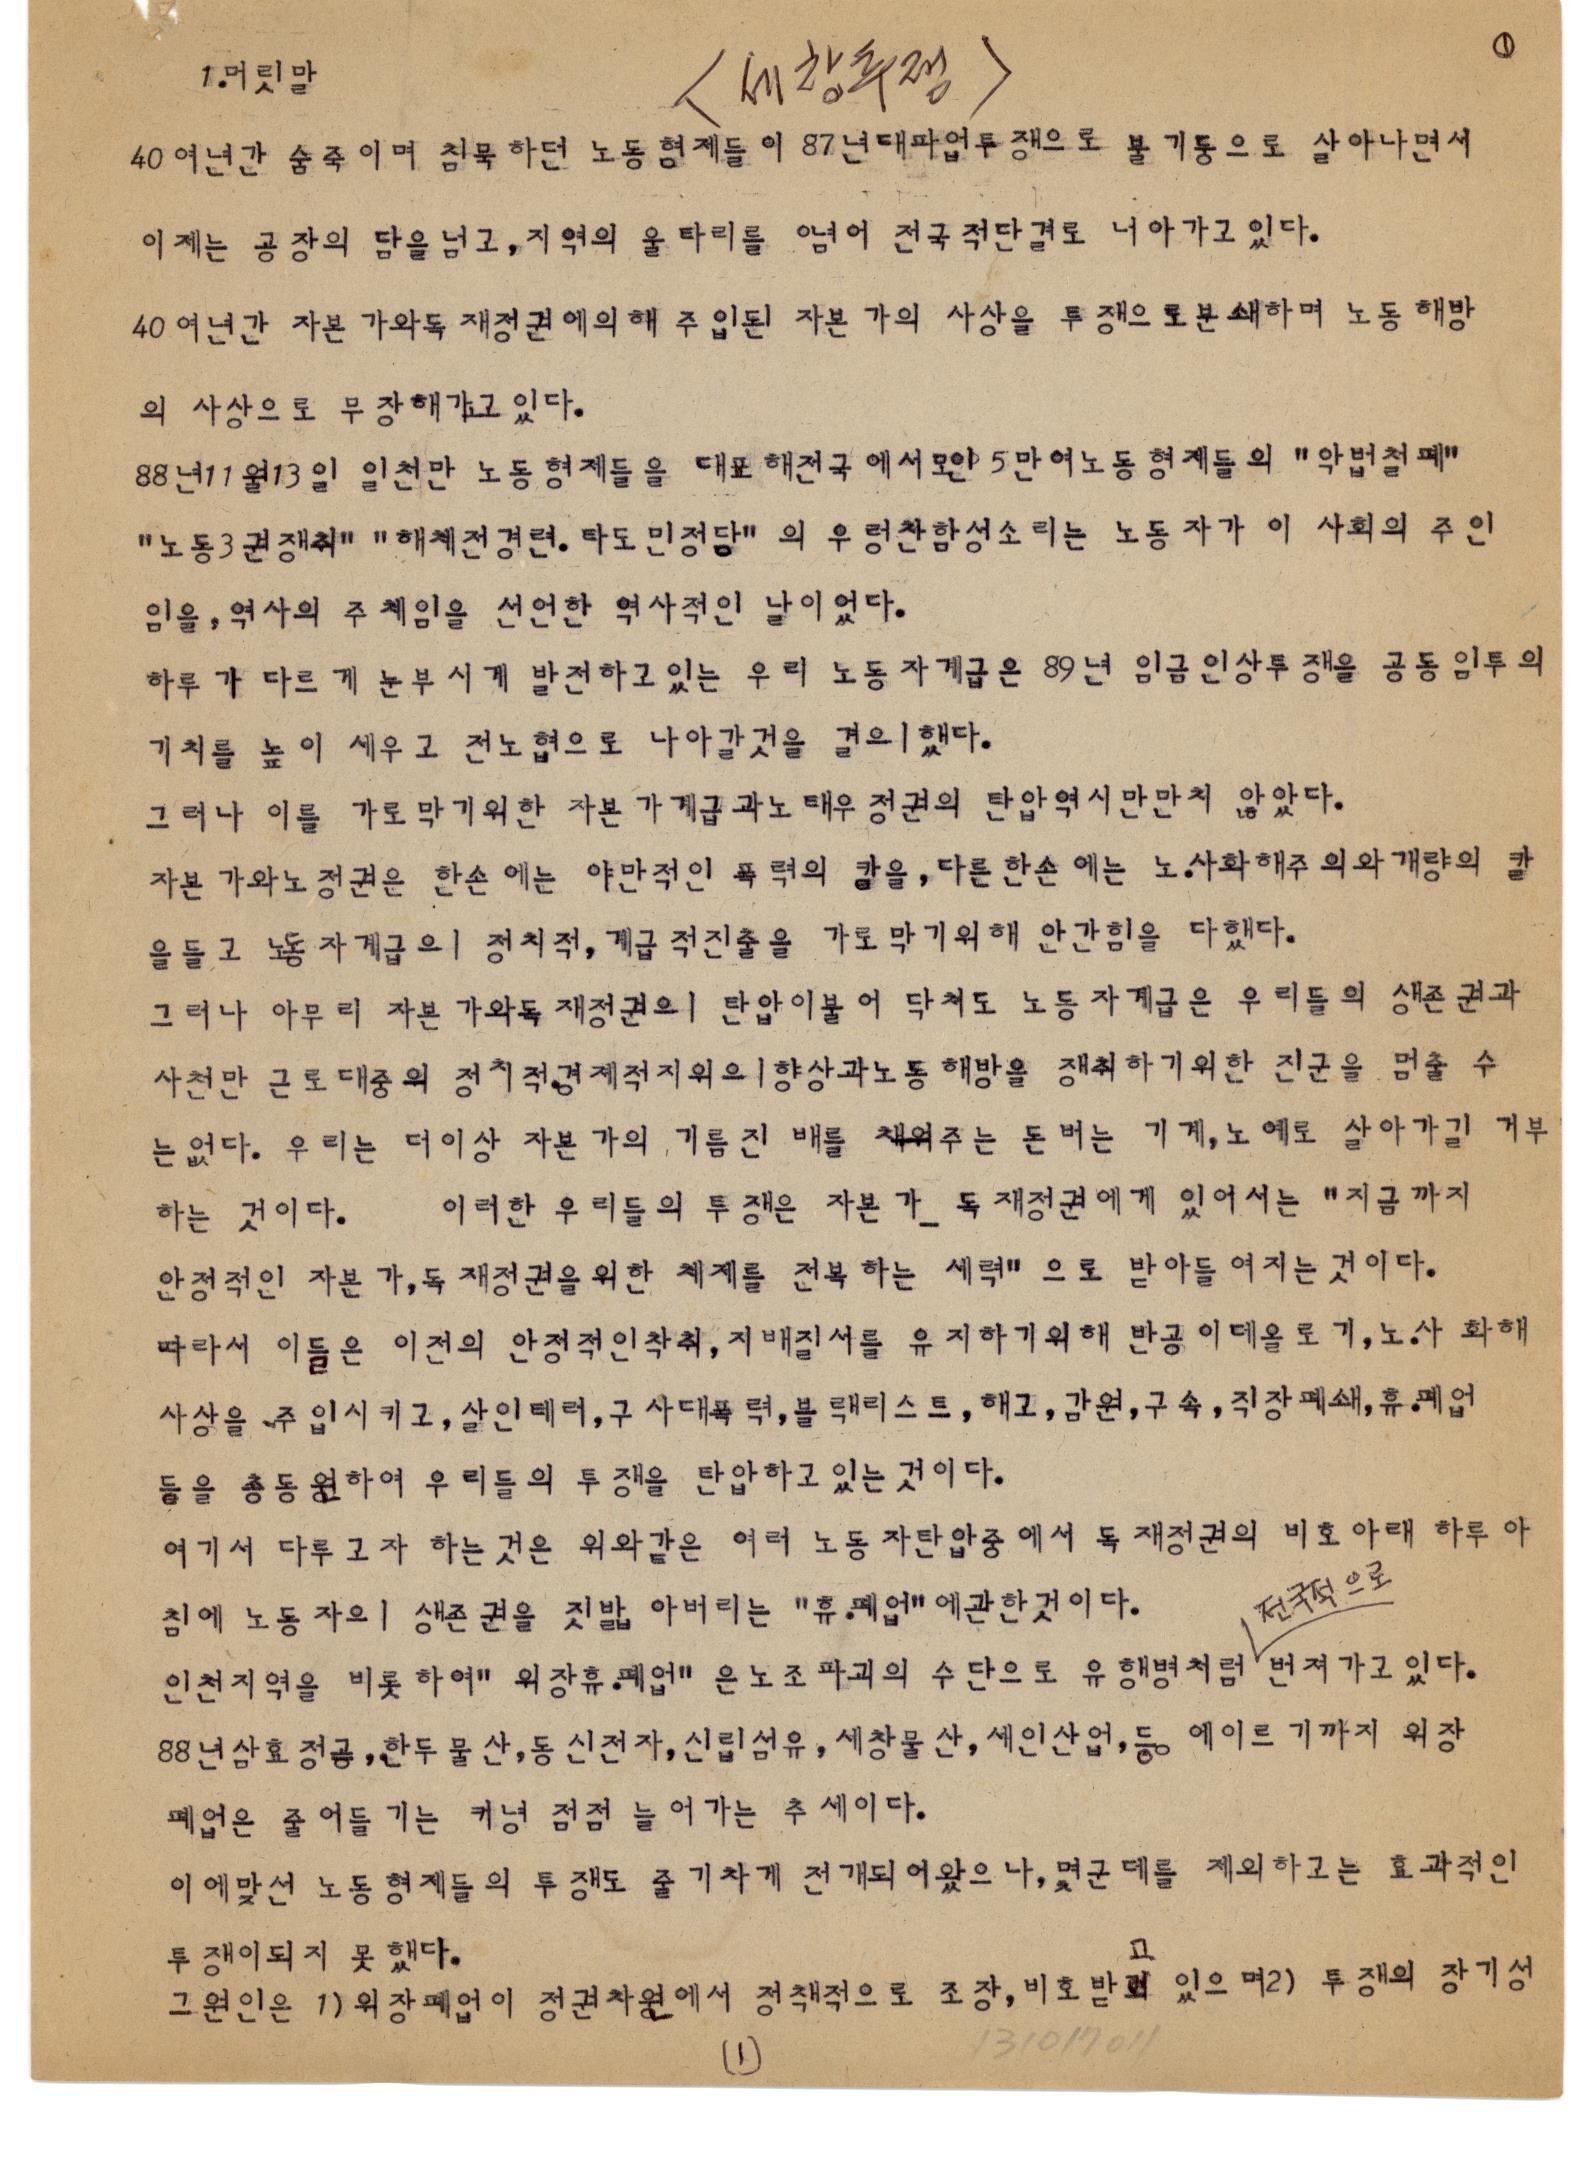 ①
<세창투쟁>
1.머릿말
40여년간 숨죽이며 침묵하던 노동형제들이 87년대파업투쟁으로 불기둥으로 살아나면서
이제는 공장의 담을넘고,지역의 울타리를 넘어 전국적단결로 너아가고있다.
40여년간 자본가와독재정권에의해 주입된 자본가의 사상을 투쟁으로분쇄하며 노동해방
의 사상으로 무장해가고있다.
88년11월13일 일천만 노동형제들을 대표해전국에서모인5만여노동형제들의 "악법철폐"
"노동3권쟁취" "해체전경련.타도민정당" 의 우렁찬함성소리는 노동자가 이 사회의 주인
임을,역사의 주체임을 선언한 역사적인 날이었다.
하루가 다르게 눈부시게 발전하고있는 우리 노동자계급은 89년 임금인상투쟁을 공동임투의
기치를 높이 세우고 전노협으로 나아갈것을 결으ㅣ했다.
그러나 이를 가로막기위한 자본가계급과노태우정권의 탄압역시만만치 않았다.
자본가와노정권은 한손에는 야만적인 폭력의 칼을,다른한손에는 노.사화해주의와개량의 칼
을들고 노동자계급으ㅣ 정치적,계급적진출을 가로막기위해 안간힘을 다했다.
그러나 아무리 자본가와독재정권으ㅣ 탄압이불어 닥쳐도 노동자계급은 우리들의 생존권과
사천만 근로대중의 정치적.경제적지위으ㅣ향상과노동해방을 쟁취하기위한 진군을 멈출 수
는없다. 우리는 더이상 자본가의 기름진 배를 채워주는 돈버는 기계,노예로 살아가길 거부
하는 것이다. 이러한 우리들의 투쟁은 자본가_ 독재정권에게 있어서는 "지금까지
안정적인 자본가,독재정권을위한 체제를 전복하는 세력" 으로 받아들여지는것이다.
따라서 이들은 이전의 안정적인착취,지배질서를 유지하기위해 반공이데올로기,노.사 화해
사상을 주입시키고,살인테러,구사대폭력,블랙리스트,해고,감원,구속,직장폐쇄,휴.폐업
등을 총동원하여 우리들의 투쟁을 탄압하고있는것이다.
여기서 다루고자 하는것은 위와같은 여러 노동자탄압중에서 독재정권의 비호아래 하루아
침에 노동자으ㅣ 생존권을 짓밟아버리는 "휴.폐업"에관한것이다.
전국적으로
인천지역을 비롯하여" 위장휴.폐업" 은노조파괴의 수단으로 유행병처럼 번져가고있다.
88년삼효정공,한두물산,동신전자,신립섬유,세창물산,세인산업,등。에이르기까지 위장
폐업은 줄어들기는 커녕 점점 늘어가는 추세이다.
이에맞선 노동형제들의 투쟁도 줄기차게 전개되어왔으나,몇군데를 제외하고는 효과적인
투쟁이되지 못했다.
고
그원인은 1)위장폐업이 정권차원에서 정책적으로 조장,비호받 있으며2) 투쟁의 장기성
(1)
131017011